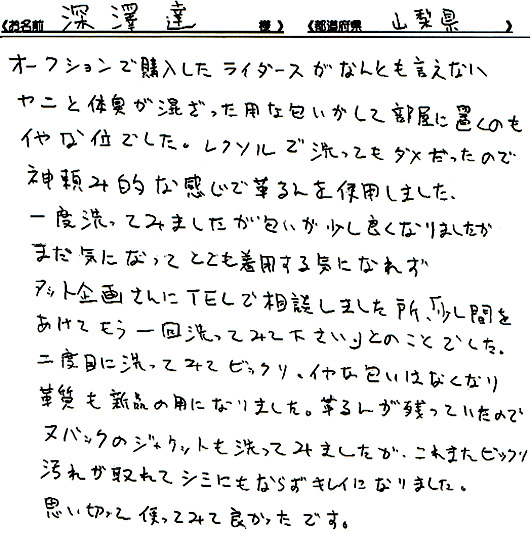 《お名前 深澤達 様》 《都道府県 山梨県 》
オークションで購入したライダースがなんとも言えない
ヤニと体臭が混ざった用な匂いがして部屋に置くのも
イヤな位でした。レクソルで洗ってもダメだったので
神頼み的な感じで革るんを使用しました。
一度洗ってみましたが匂いが少し良くなりましたが
まだ気になってとても着用する気になれず
アット企画さんにTELで相談しました所、「少し間を
あけてもう一回洗ってみて下さい」とのことでした。
二度目に洗ってみてビックリ、イヤな匂いはなくなり
革質も新品の用になりました。革るんが残っていたので
ヌバックのジャケットも洗ってみましたが、これまたビックリ
汚れが取れてシミにもならずキレイになりました。
思い切って使ってみて良かったです。